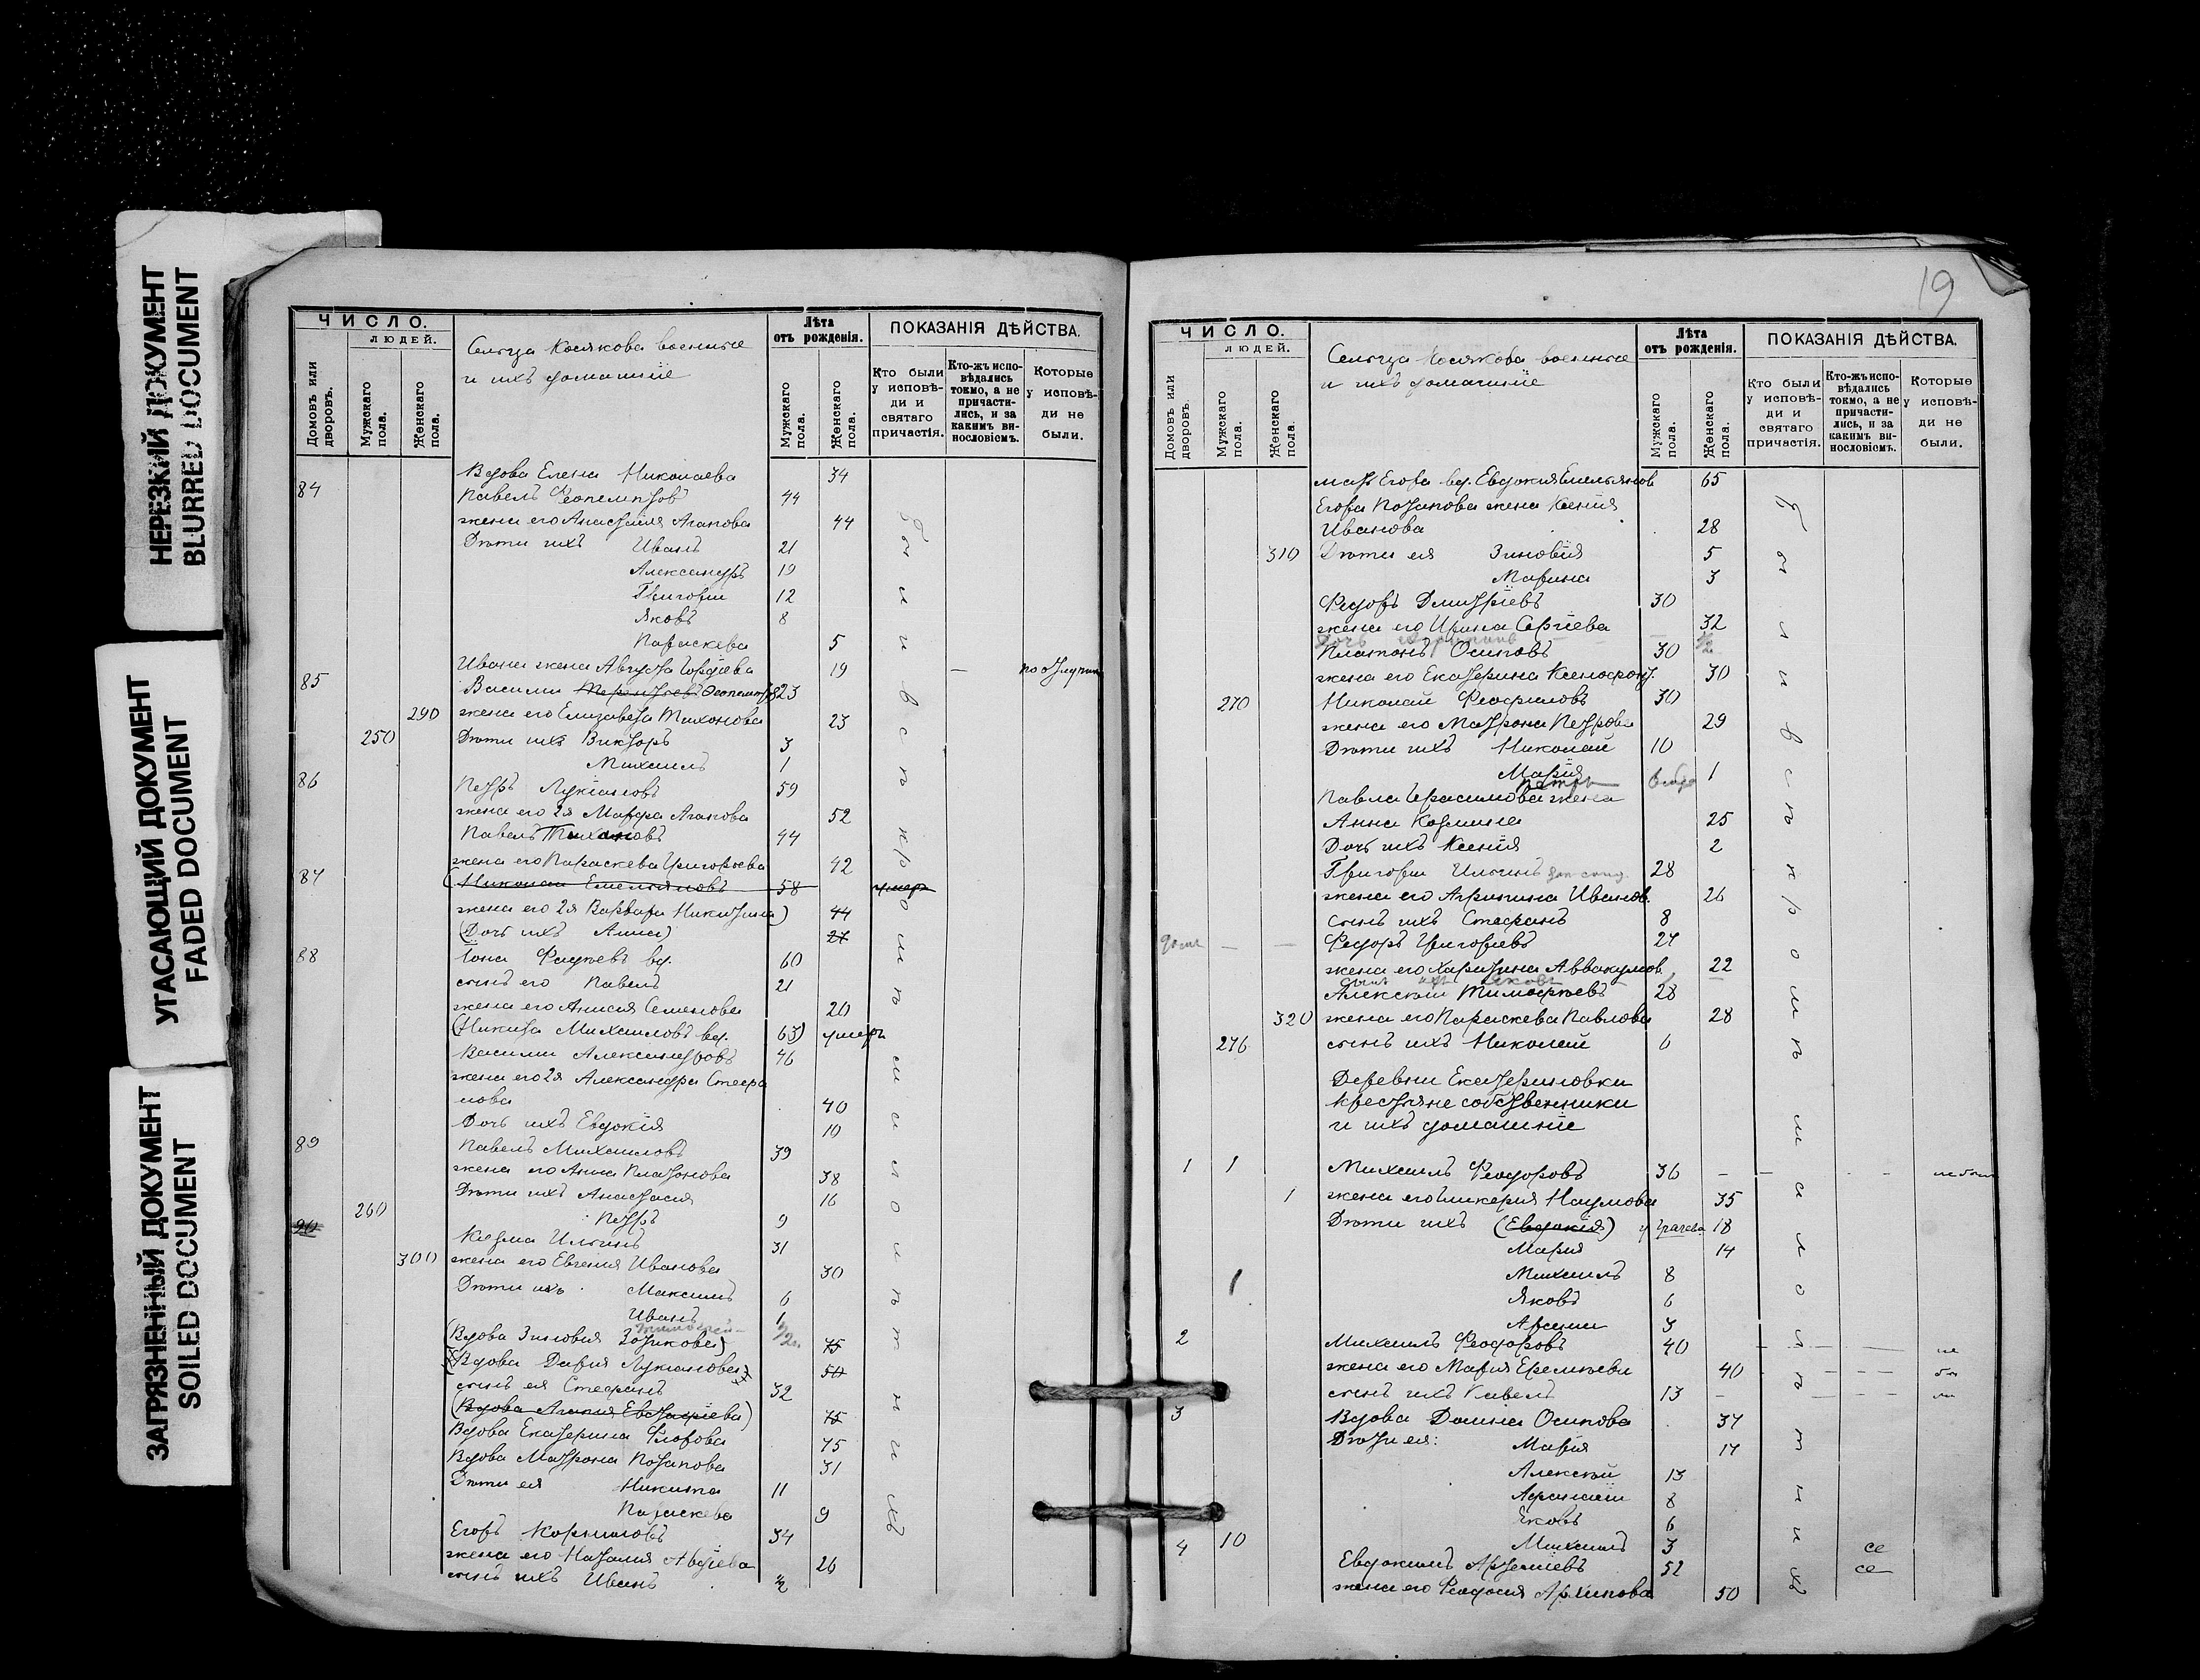 НЕРЕЗКИЙ ДОКУМЕНТ
BLURRED DOCUMENT
УГАСАЮЩИЙ ДОКУМЕНТ
FADED DOCUMENT
ЗАГРЯЗНЕННЫЙ ДОКУМЕНТ
SOILED DOCUMENT
ЧИСЛО.
ЛЮДЕЙ.
Домовъ или дворовъ.
Мужскаго пола.
Женскаго пола.
Сельца Косякова военные
и ихъ домашніе
Лѣта
отъ рожденія.
Мужскаго пола.
Женскаго пола.
ПОКАЗАНІЯ ДѢЙСТВА.
Кто были у исповѣди и святаго причастія.
Кто-жъ исповѣдались токмо, а не причастились, и за какимъ винословіемъ.
Которые у исповѣди не были.
Вдова Елена Николаева 34
84 Павелъ Феопемптовъ 44
жена его Анастасія Агапова 44
Дѣти ихъ Иванъ 21
Александръ 19
Григорій 12
Яковъ 8
Параскева 5
Ивана жена Августа Гордѣева 19 —
85 Василій Терентьевъ Феопемптовъ 23
290 жена его Елизавета Тихонова 23
250 Дѣти ихъ Викторъ 3
Михаилъ 1
86 Петръ Лукіановъ 59
жена его 2я Марфа Агапова 52
Павелъ Тихановъ 44
жена его Параскева Григорьева 42
87 (Николай Емельяновъ 58 умеръ
жена его 2я Варвара Никитина) 44
(Дочь ихъ Анна) 21
88 Іона Фадѣевъ вд. 60
сынъ его Павелъ 21
жена его Анисія Семенова 20
(Никита Михаиловъ вд. 63) умеръ
Василій Александровъ 46
жена его 2я Александра Стефа
нова 40
Дочь ихъ Евдокія 10
89 Павелъ Михаиловъ 39
жена его Анна Платонова 38
Дѣти ихъ Анастасія 16
260 Петръ 9
90 Козма Ильинъ 31
300 жена его Евгенія Иванова 30
Дѣти ихъ Максимъ 6
Иванъ 1
(Вдова Зиновія) 75
(Вдова Дарія Лукіанова) 50
сынъ ея Стефанъ 32
(Вдова Агапія Евстафіева) 75
Вдова Екатерина Флорова 75
Вдова Матрона Потапова 31
Дѣти ея Никита 11
Параскева 9
Егоръ Корниловъ 34
жена его Наталія Авдіева 26
сынъ ихъ Иванъ ½
были в с п к р о м ѣ м а л о л ѣ т н и хъ
19
ЧИСЛО.
ЛЮДЕЙ.
Домовъ или дворовъ.
Мужскаго пола.
Женскаго пола.
Сельца Косякова военные
и ихъ домашніе
Лѣта
отъ рожденія.
Мужскаго пола.
Женскаго пола.
ПОКАЗАНІЯ ДѢЙСТВА.
Кто были у исповѣди и святаго причастія.
Кто-жъ исповѣдались токмо, а не причастились, и за какимъ винословіемъ.
Которые у исповѣди не были.
мать Егора вд. Евдокія Емельянов 65
Егора Потапова жена Ксенія
Иванова 28
310 Дѣти ея Зиновія 5
Марина 3
Федоръ Димитріевъ 30
жена его Ирина Сергіева 32
Дочь
Платонъ Осиповъ 30
жена его Екатерина Ксенофонт. 30
270 Николай Феофиловъ 30
жена его Матрона Петрова 29
Дѣти ихъ Николай 10
Марія 1
Петръ
Павла Герасимова жена
Анна Козмина 25
Дочь ихъ Ксенія 2
Григорій Ильинъ 28
жена его Агрипина Иванов. 26
сынъ ихъ Стефанъ 8
— — Федоръ Григорьевъ 27
жена его Харитина Аввакумов. 22
сынъ ихъ Яковъ
Алексѣй Тимофѣевъ 28
320 жена его Параскева Павлова 28
276 сынъ ихъ Николай 6
Деревни Екатериновки
крестьяне собственники
и ихъ домашніе
1 1 Михаилъ Феодоровъ 36 — — - - не были
1 жена его Гликерія Наумова 35
Дѣти ихъ (Евдокія) 18
Марія 14
1 Михаилъ 8
Яковъ 6
Арсеній 3
2 Михаилъ Феодоровъ 40 не
жена его Марія Еремѣева 40 бы
сынъ ихъ Павелъ 13 ли
3 Вдова Домна Осипова 37
Дѣти ея: Марія 17
Алексѣй 13
Афанасій 8
Яковъ 6
10 Михаилъ 3 се
4 Евдокимъ Артеміевъ 52 се
жена его Феодосія Архипова 50
были в с п к р о м ѣ м а л о л ѣ т н и хъ